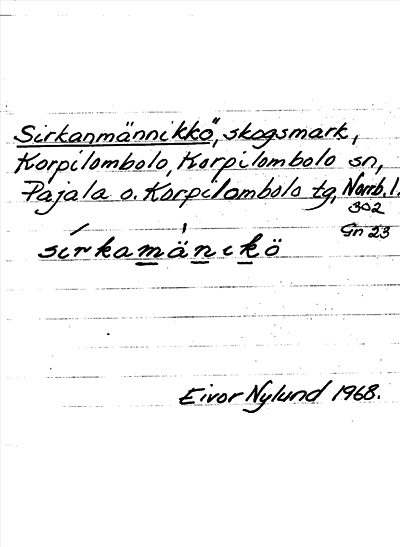 Sirkanmännikkö", skogsmark,
Korpilombolo, Korpilombolo sn,
Pajala o. Korpilombolo tg, Norrb. l.
302
Gn 23
sírkamánikö
Eivor Nylund 1968.